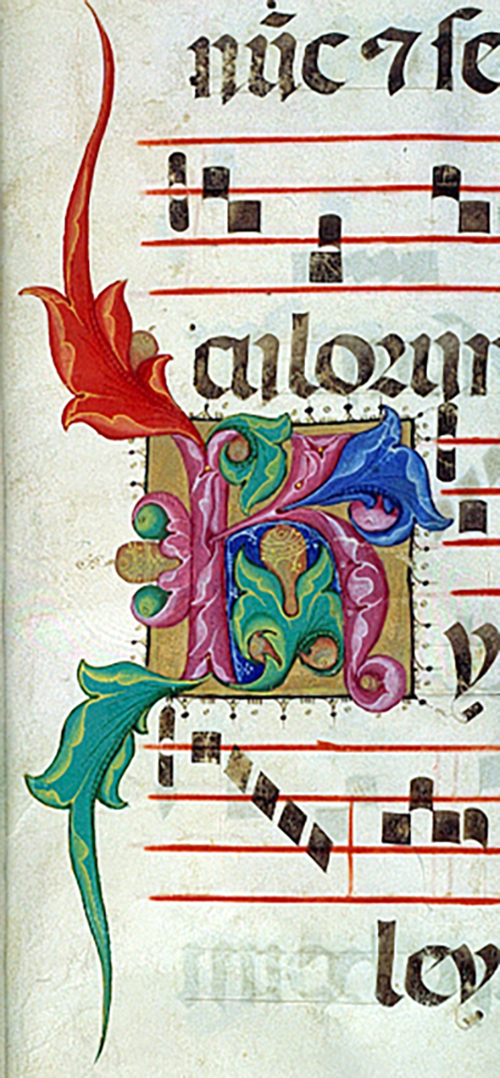 nūc ⁊ ſe
culorum
K y
ley